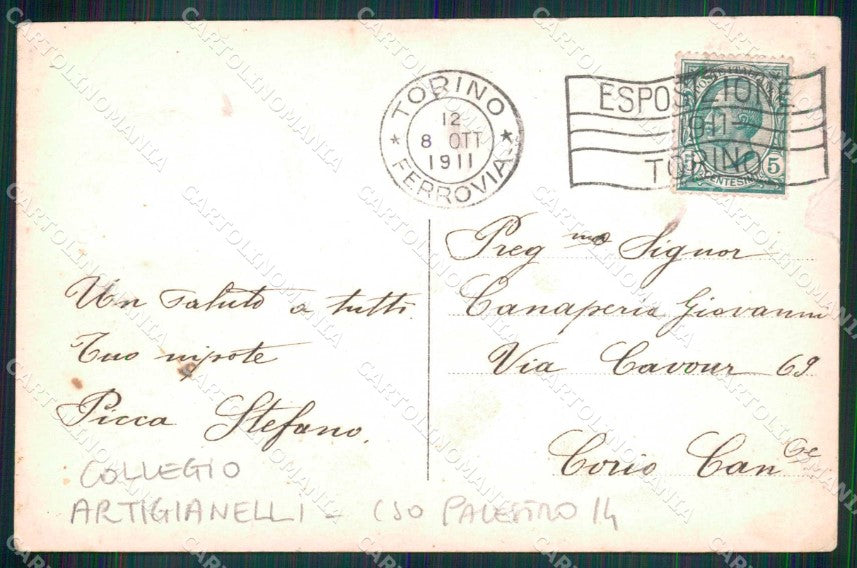 TORINO
12
8 OTT
1911
FERROVIA
ESPOSIZIONE
1911
TORINO
5
Preg mo Signor
Canaperia Giovanni
Via Cavour 69
Corio Can se
Un saluto a tutti.
Tuo nipote
Picca Stefano.
COLLEGIO
ARTIGIANELLI - CSO PALESTRO 14
CARTOLINOMANIA